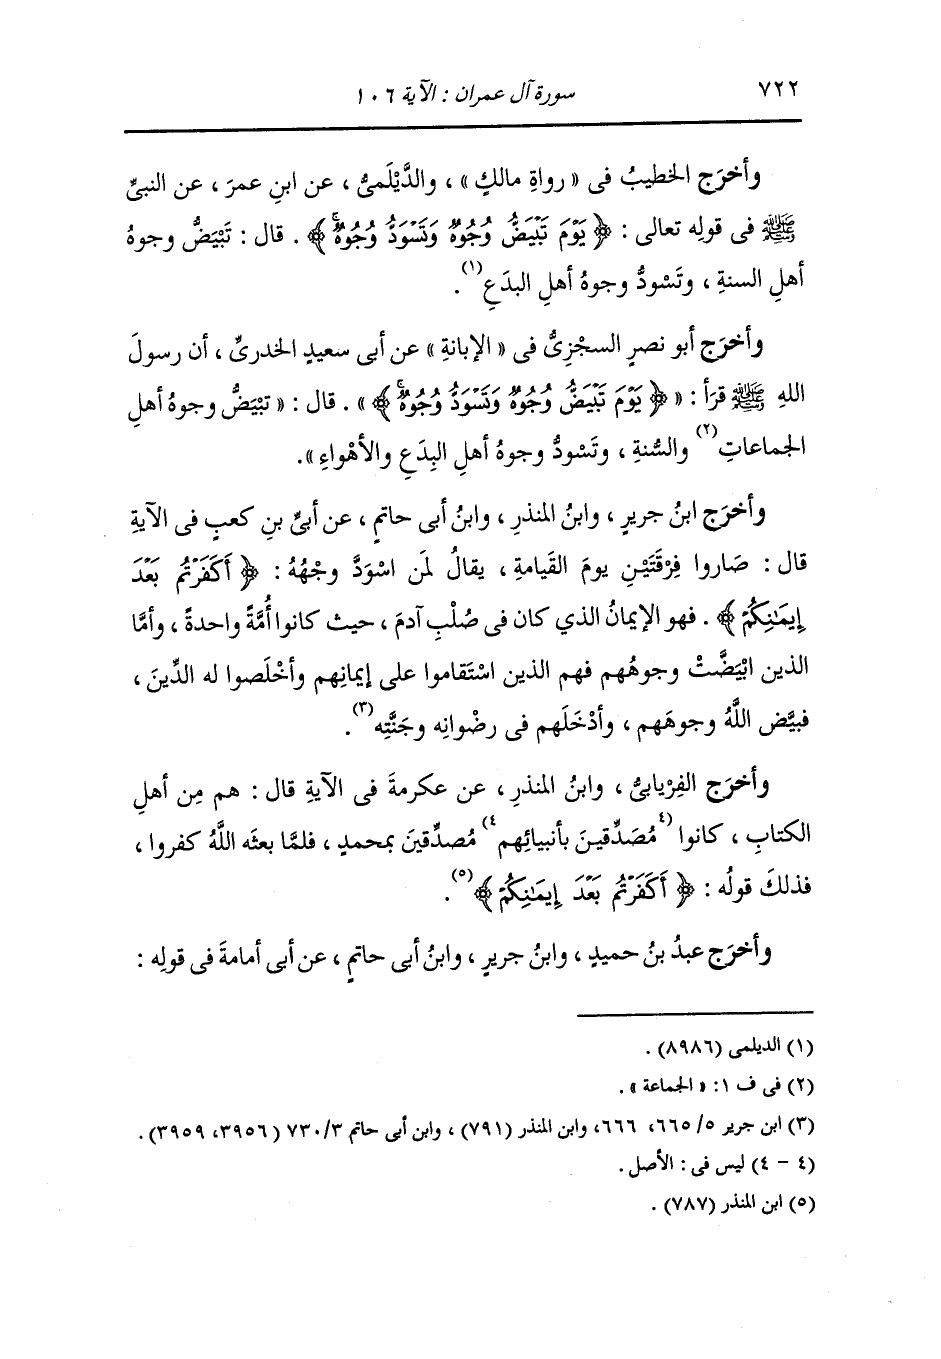 ٧٢٢ سورة آل عمران : الآية ١٠٦
وأخرَج الخطيبُ فى « رواةِ مالكٍ » ، والدَّيْلَمىُّ ، عن ابنِ عمرَ ، عن النبىِّ
ﷺ فى قولِه تعالى : ﴿ يَوْمَ تَبْيَضُّ وُجُوهٌ وَتَسْوَدُّ وُجُوهٌ ۚ ﴾ . قال : تَبْيَضُّ وجوهُ
أهلِ السنةِ ، وتَسْودُّ وجوهُ أهلِ البدَعِ (١) .
وأخرَج أبو نصرٍ السجْزِىُّ فى « الإبانةِ » عن أبى سعيدٍ الخدرىِّ ، أن رسولَ
اللهِ ﷺ قرَأ : « ﴿ يَوْمَ تَبْيَضُّ وُجُوهٌ وَتَسْوَدُّ وُجُوهٌ ۚ ﴾ » . قال : « تبْيَضُّ وجوهُ أهلِ
الجماعاتِ (٢) والسُّنةِ ، وتَسْودُّ وجوهُ أهلِ البِدَعِ والأهْواءِ » .
وأخرَج ابنُ جريرٍ ، وابنُ المنذرِ ، وابنُ أبى حاتمٍ ، عن أبىِّ بنِ كعبٍ فى الآيةِ
قال : صَاروا فِرْقَتَيْنِ يومَ القَيامةِ ، يقالُ لمَن اسْوَدَّ وجْهُهُ : ﴿ أَكَفَرْتُم بَعْدَ
إِيمَـٰنِكُمْ ﴾ . فهو الإيمانُ الذي كان فى صُلْبِ آدمَ ، حيث كانوا أُمَّةً واحدةً ، وأمَّا
الذين ابْيَضَّتْ وجوهُهم فهم الذين اسْتَقاموا على إيمانِهم وأخْلَصوا له الدِّينَ ،
فبيَّض اللَّهُ وجوهَهم ، وأدْخَلَهم فى رضْوانِه وجَنَّتِه (٣) .
وأخرَج الفِرْيابىُّ ، وابنُ المنذرِ ، عن عكرمةَ فى الآيةِ قال : هم مِن أهلِ
الكتابِ ، كانوا (٤ مُصَدِّقينَ بأنبيائِهم ٤) مُصدِّقينَ بمحمدٍ ، فلمَّا بعثَه اللَّهُ كفروا ،
فذلكَ قولُه : ﴿ أَكَفَرْتُم بَعْدَ إِيمَـٰنِكُمْ ﴾ (٥) .
وأخرَج عبدُ بنُ حميدٍ ، وابنُ جريرٍ ، وابنُ أبى حاتمٍ ، عن أبى أمامةَ فى قولِه :
(١) الديلمى (٨٩٨٦) .
(٢) فى ف ١ : « الجماعة » .
(٣) ابن جرير ٥/ ٦٦٥، ٦٦٦، وابن المنذر (٧٩١) ، وابن أبى حاتم ٣/ ٧٣٠ ( ٣٩٥٦، ٣٩٥٩) .
(٤ - ٤) ليس فى : الأصل .
(٥) ابن المنذر (٧٨٧) .